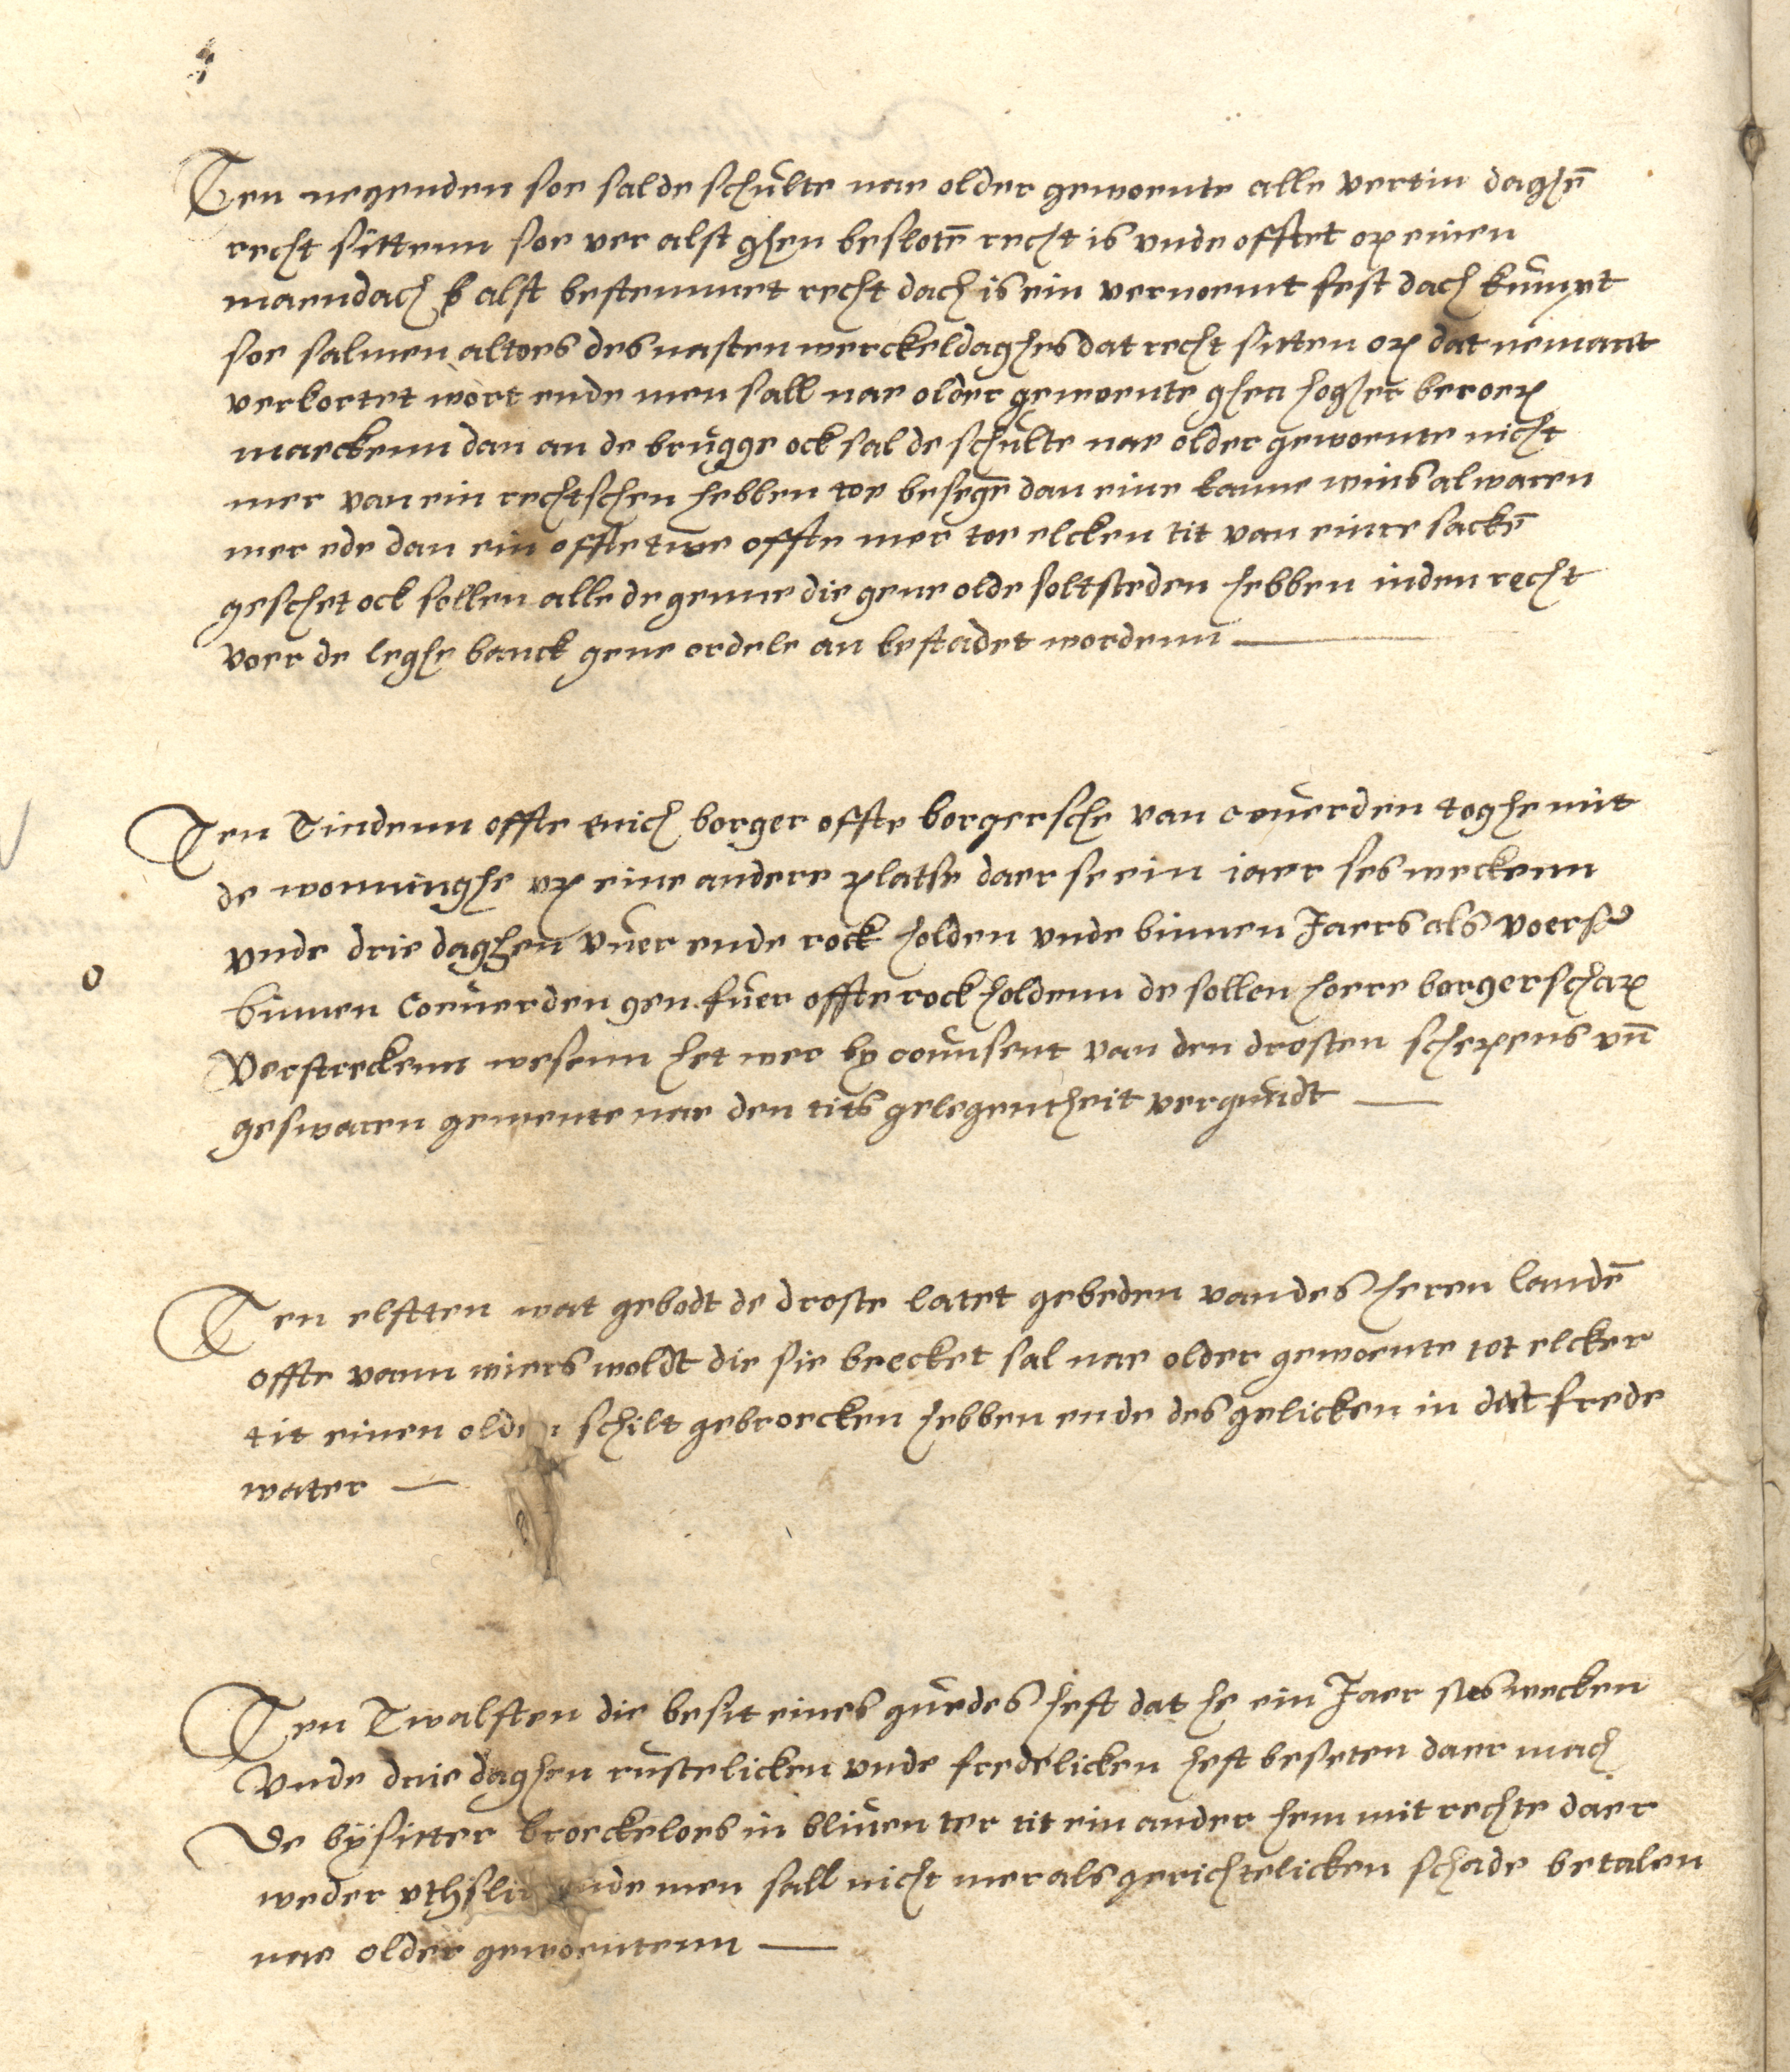 Ten negenden soe sal de schulte nae older gewoente alle vertin daghē
recht sittenn soe ver alst ghen beslotē recht is vnde offtet op einen
maendach alst bestemmet recht dach is ein vernoemt fest dach kumpt
soe salmen altoes des nasten werckeldaghes dat recht sitten op dat nemant
verkortet wort ende men sall nae older gewoente ghen hogher beroep
maeckenn dan an de brugge ock sal de schulte nae older gewoente nicht
mer van ein rechtschen hebben toe besegē dan eine kanne wins al waren
mer ede dan ein offte twe offte mer toe elcken tit van einre sackē
geschet ock sollen alle de genne die gene olde soltsteden hebben in den recht
voer de leghe banck gene ordele an bestadet wordenn
Ten Tindenn offte enich borger offte borgersche van couerden toghe mit
de wonninghe vp eine andere platse daer se ein iaer ses weckenn
vnde drie daghen vuer ende rock holden vnde binnen Jaers als voerss
binnen Coeuerden gen fuer offte rock holdenn de sollen hoere borgerschap
Verstreckenn wesenn het wer by counsent van den drosten schepens vn̄
geswaren gemente nae den tits gelegentheit vergundt
Ten elfften wat gebodt de droste latet gebeden van des heren landē
offte vann wiers woldt die sie brecket sal nae older gewoente tot elcker
tit einen olden schilt gebroecken hebben ende des gelicken in dat frede
water
Ten Twalften die besit eines guedes heft dat he ein Jaer ses wecken
Vnde drie daghen rustelicken vnde fredelicken heft beseten daer mach
De bysitter broeckeloes in bliuen ter tit ein ander hem mit rechte daer
weder vthslit ende men sall nicht mer als gerichtelicken schade betalen
nae older gewoentenn